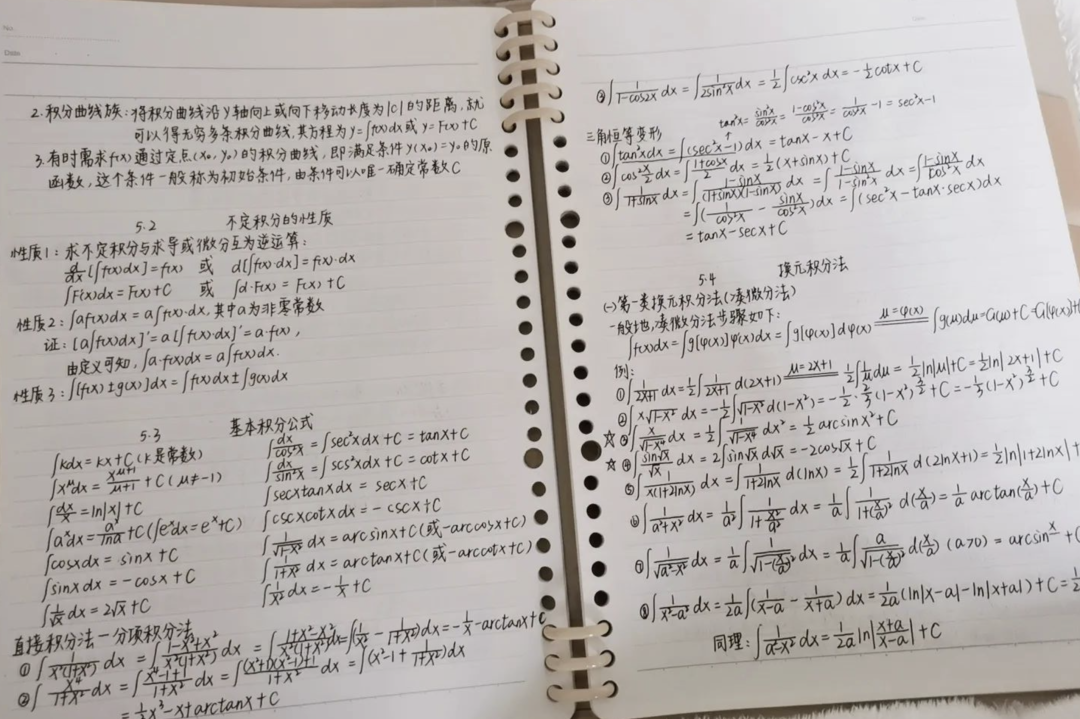 No.
Date
2. 积分曲线族：将积分曲线沿y轴向上或向下移动长度为|C|的距离，就
可以得无穷多条积分曲线，其方程为y=∫f(x)dx或 y=F(x)+C
3. 有时需求f(x)通过定点(x₀, y₀)的积分曲线，即满足条件y(x₀)=y₀的原
函数，这个条件一般称为初始条件，由条件可以唯一确定常数C
5.2 不定积分的性质
性质1：求不定积分与求导或微分互为逆运算：
d/dx[∫f(x)dx]=f(x) 或 d[∫f(x)·dx]=f(x)·dx
∫F'(x)dx=F(x)+C 或 ∫d·F(x)=F(x)+C
性质2：∫af(x)dx=a∫f(x)·dx，其中a为非零常数
证：[a∫f(x)dx]'=a[∫f(x)·dx]'=a·f(x)，
由定义可知，∫a·f(x)dx=a∫f(x)dx.
性质3：∫[f(x)±g(x)]dx=∫f(x)dx±∫g(x)dx
5.3 基本积分公式
∫kdx=kx+C(k是常数) ∫dx/cos²x=∫sec²xdx+C=tanx+C
∫x^μdx=x^(μ+1)/(μ+1)+C(μ≠-1) ∫dx/sin²x=∫scs²xdx+C=cotx+C
∫dx/x=ln|x|+C ∫secxtanxdx=secx+C
∫a^xdx=a^x/lna+C(∫e^xdx=e^x+C) ∫cscxcotxdx=-cscx+C
∫cosxdx=sinx+C ∫1/√(1-x²)dx=arcsinx+C(或-arccosx+C)
∫sinxdx=-cosx+C ∫1/(1+x²)dx=arctanx+C(或-arccotx+C)
∫1/√x dx=2√x+C ∫1/x²dx=-1/x+C
直接积分法—分项积分法
①∫1/(x²(1+x²))dx=∫(1-x²+x²)/(x²(1+x²))dx=∫(1+x²-x²)/(x²(1+x²))dx=∫(1/x²-1/(1+x²))dx=-1/x-arctanx+C
②∫x⁴/(1+x²)dx=∫(x⁴-1+1)/(1+x²)dx=∫((x²+1)(x²-1)+1)/(1+x²)dx=∫(x²-1+1/(1+x²))dx
=1/3x³-x+arctanx+C
∫1/(1-cos2x)dx=∫1/(2sin²x)dx=1/2∫csc²xdx=-1/2cotx+C
tan²x=sin²x/cos²x=(1-cos²x)/cos²x=1/cos²x-1=sec²x-1
三角恒等变形
①∫tan²xdx=∫(sec²x-1)dx=tanx-x+C
②∫cos²x/2dx=∫(1+cosx)/2dx=1/2(x+sinx)+C
③∫1/(1+sinx)dx=∫(1-sinx)/((1+sinx)(1-sinx))dx=∫(1-sinx)/(1-sin²x)dx=∫(1-sinx)/cos²x dx
=∫(1/cos²x-sinx/cos²x)dx=∫(sec²x-tanx·secx)dx
=tanx-secx+C
5.4 换元积分法
(一)第一类换元积分法(凑微分法)
一般地，凑微分法步骤如下：
∫f(x)dx=∫g[φ(x)]φ'(x)dx=∫g[φ(x)]dφ(x) μ=φ(x) ∫g(μ)dμ=G(μ)+C=G[φ(x)]+
例：
①∫1/(2x+1)dx=1/2∫1/(2x+1)d(2x+1) μ=2x+1 1/2∫1/μdμ=1/2ln|μ|+C=1/2ln|2x+1|+C
②∫x√(1-x²)dx=-1/2∫√(1-x²)d(1-x²)=-1/2·2/3(1-x²)^(3/2)+C=-1/3(1-x²)^(3/2)+C
☆③∫x/√(1-x⁴)dx=1/2∫1/√(1-x⁴)dx²=1/2arcsinx²+C
☆④∫sin√x/√x dx=2∫sin√xd√x=-2cos√x+C
⑤∫1/(x(1+2lnx))dx=∫1/(1+2lnx)d(lnx)=1/2∫1/(1+2lnx)d(2lnx+1)=1/2ln|1+2lnx|+
⑥∫1/(a²+x²)dx=1/a²∫1/(1+x²/a²)dx=1/a∫1/(1+(x/a)²)d(x/a)=1/a arctan(x/a)+C
⑦∫1/√(a²-x²)dx=1/a∫1/√(1-(x/a)²)dx=1/a∫a/√(1-(x/a)²)d(x/a)(a>0)=arcsin x/ +C
⑧∫1/(x²-a²)dx=1/2a∫(1/(x-a)-1/(x+a))dx=1/2a(ln|x-a|-ln|x+a|)+C=1/2
同理：∫1/(a²-x²)dx=1/2a ln|(x+a)/(x-a)|+C